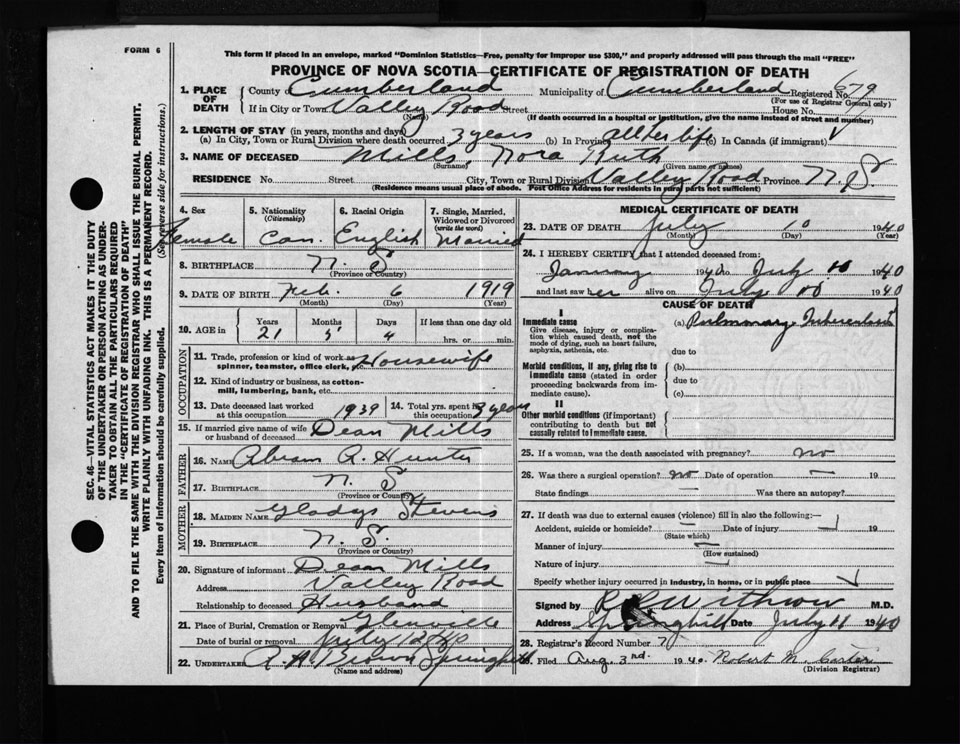 FORM 6
This form if placed in an envelope, marked "Dominion Statistics—Free, penalty for improper use $300," and properly addressed will pass through the mail "FREE"
PROVINCE OF NOVA SCOTIA—CERTIFICATE OF REGISTRATION OF DEATH
SEC. 46—VITAL STATISTICS ACT MAKES IT THE DUTY
OF THE UNDERTAKER OR PERSON ACTING AS UNDER-
TAKER TO OBTAIN ALL THE PARTICULARS REQUIRED
IN THE "CERTIFICATE OF REGISTRATION OF DEATH"
AND TO FILE THE SAME WITH THE DIVISION REGISTRAR WHO SHALL ISSUE THE BURIAL PERMIT.
WRITE PLAINLY WITH UNFADING INK. THIS IS A PERMANENT RECORD.
Every item of information should be carefully supplied. (See reverse side for instructions.)
1. PLACE OF DEATH County of Cumberland Municipality of Cumberland Registered No. 679
(For use of Registrar General only)
If in City or Town Valley Road Street House No.
(Name) (If death occurred in a hospital or institution, give the name instead of street and number)
2. LENGTH OF STAY (in years, months and days)
(a) In City, Town or Rural Division where death occurred 3 years (b) In Province all her life (c) In Canada (if immigrant)
3. NAME OF DECEASED Mills, Nora Ruth
(Surname) (Given name or names)
RESIDENCE No. Street City, Town or Rural Division Valley Road Province N.S.
(Residence means usual place of abode. Post Office Address for residents in rural parts not sufficient)
4. Sex Female
5. Nationality (Citizenship) Can.
6. Racial Origin English
7. Single, Married, Widowed or Divorced (write the word) Married
8. BIRTHPLACE N. S
(Province or Country)
9. DATE OF BIRTH Feb. 6 1919
(Month) (Day) (Year)
10. AGE in Years 21 Months 5 Days 4 If less than one day old hrs. or min.
OCCUPATION
11. Trade, profession or kind of work as spinner, teamster, office clerk, etc. Housewife
12. Kind of industry or business, as cotton-mill, lumbering, bank, etc.
13. Date deceased last worked at this occupation 1939 14. Total yrs. spent in this occupation 3 years
15. If married give name of wife or husband of deceased Dean Mills
FATHER
16. Name Abram A. Hunter
17. Birthplace N. S
(Province or Country)
MOTHER
18. Maiden Name Gladys Stevens
19. Birthplace N. S.
(Province or Country)
20. Signature of informant Dean Mills
Address Valley Road
Relationship to deceased Husband
21. Place of Burial, Cremation or Removal
Date of burial or removal July 12 40
22. UNDERTAKER R. A. Brown Springhill
(Name and address)
MEDICAL CERTIFICATE OF DEATH
23. DATE OF DEATH July 10 1940
(Month) (Day) (Year)
24. I HEREBY CERTIFY that I attended deceased from:
January 1940 to July 10 1940
and last saw her alive on July 10 1940
CAUSE OF DEATH
I
Immediate cause (a) Pulmonary Tuberculosis
Give disease, injury or complication which caused death, not the mode of dying, such as heart failure, asphyxia, asthenia, etc.
due to
Morbid conditions, if any, giving rise to immediate cause (stated in order proceeding backwards from immediate cause). (b)
due to
(c)
II
Other morbid conditions (if important) contributing to death but not causally related to immediate cause.
25. If a woman, was the death associated with pregnancy? no
26. Was there a surgical operation? no Date of operation — 19
State findings — Was there an autopsy?
27. If death was due to external causes (violence) fill in also the following:—
Accident, suicide or homicide? — Date of injury — 19
(State which)
Manner of injury —
(How sustained)
Nature of injury —
Specify whether injury occurred in industry, in home, or in public place
Signed by Withrow M.D.
Address Springhill Date July 11 1940
28. Registrar's Record Number 7
29. Filed Aug. 3rd. 1940. Robert M.
(Division Registrar)